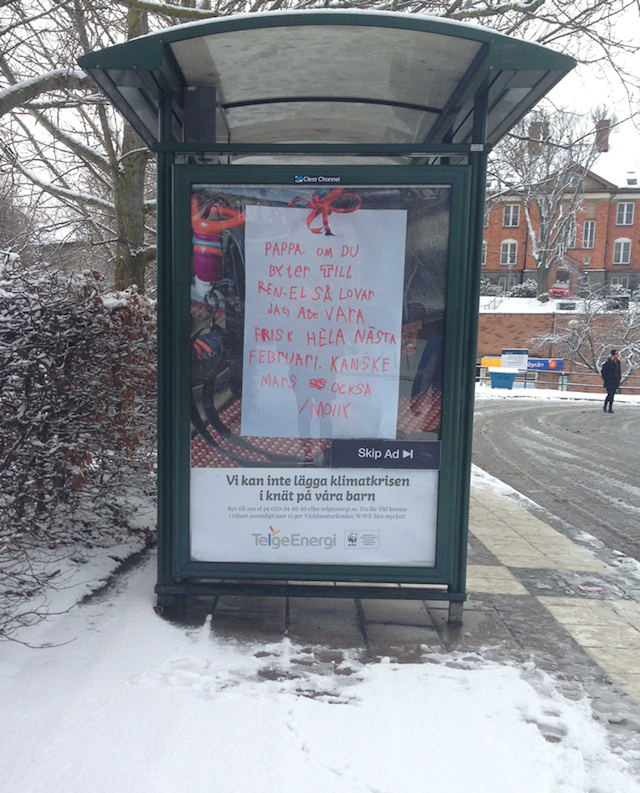 Clear Channel
PAPPA. OM DU
BYTER TILL
REN-EL SÅ LOVAR
JAG ATT VARA
FRISK HELA NÄSTA
FEBRUARI. KANSKE
MARS OCKSÅ
Skip Ad
Vi kan inte lägga klimatkrisen
i knät på våra barn
Byt till ren el på 020-34 40 40 eller telgeenergi.se. Du får 150 kronor
i rabatt samtidigt som vi ger Världsnaturfonden WWF lika mycket!
TelgeEnergi
WWF
byrån